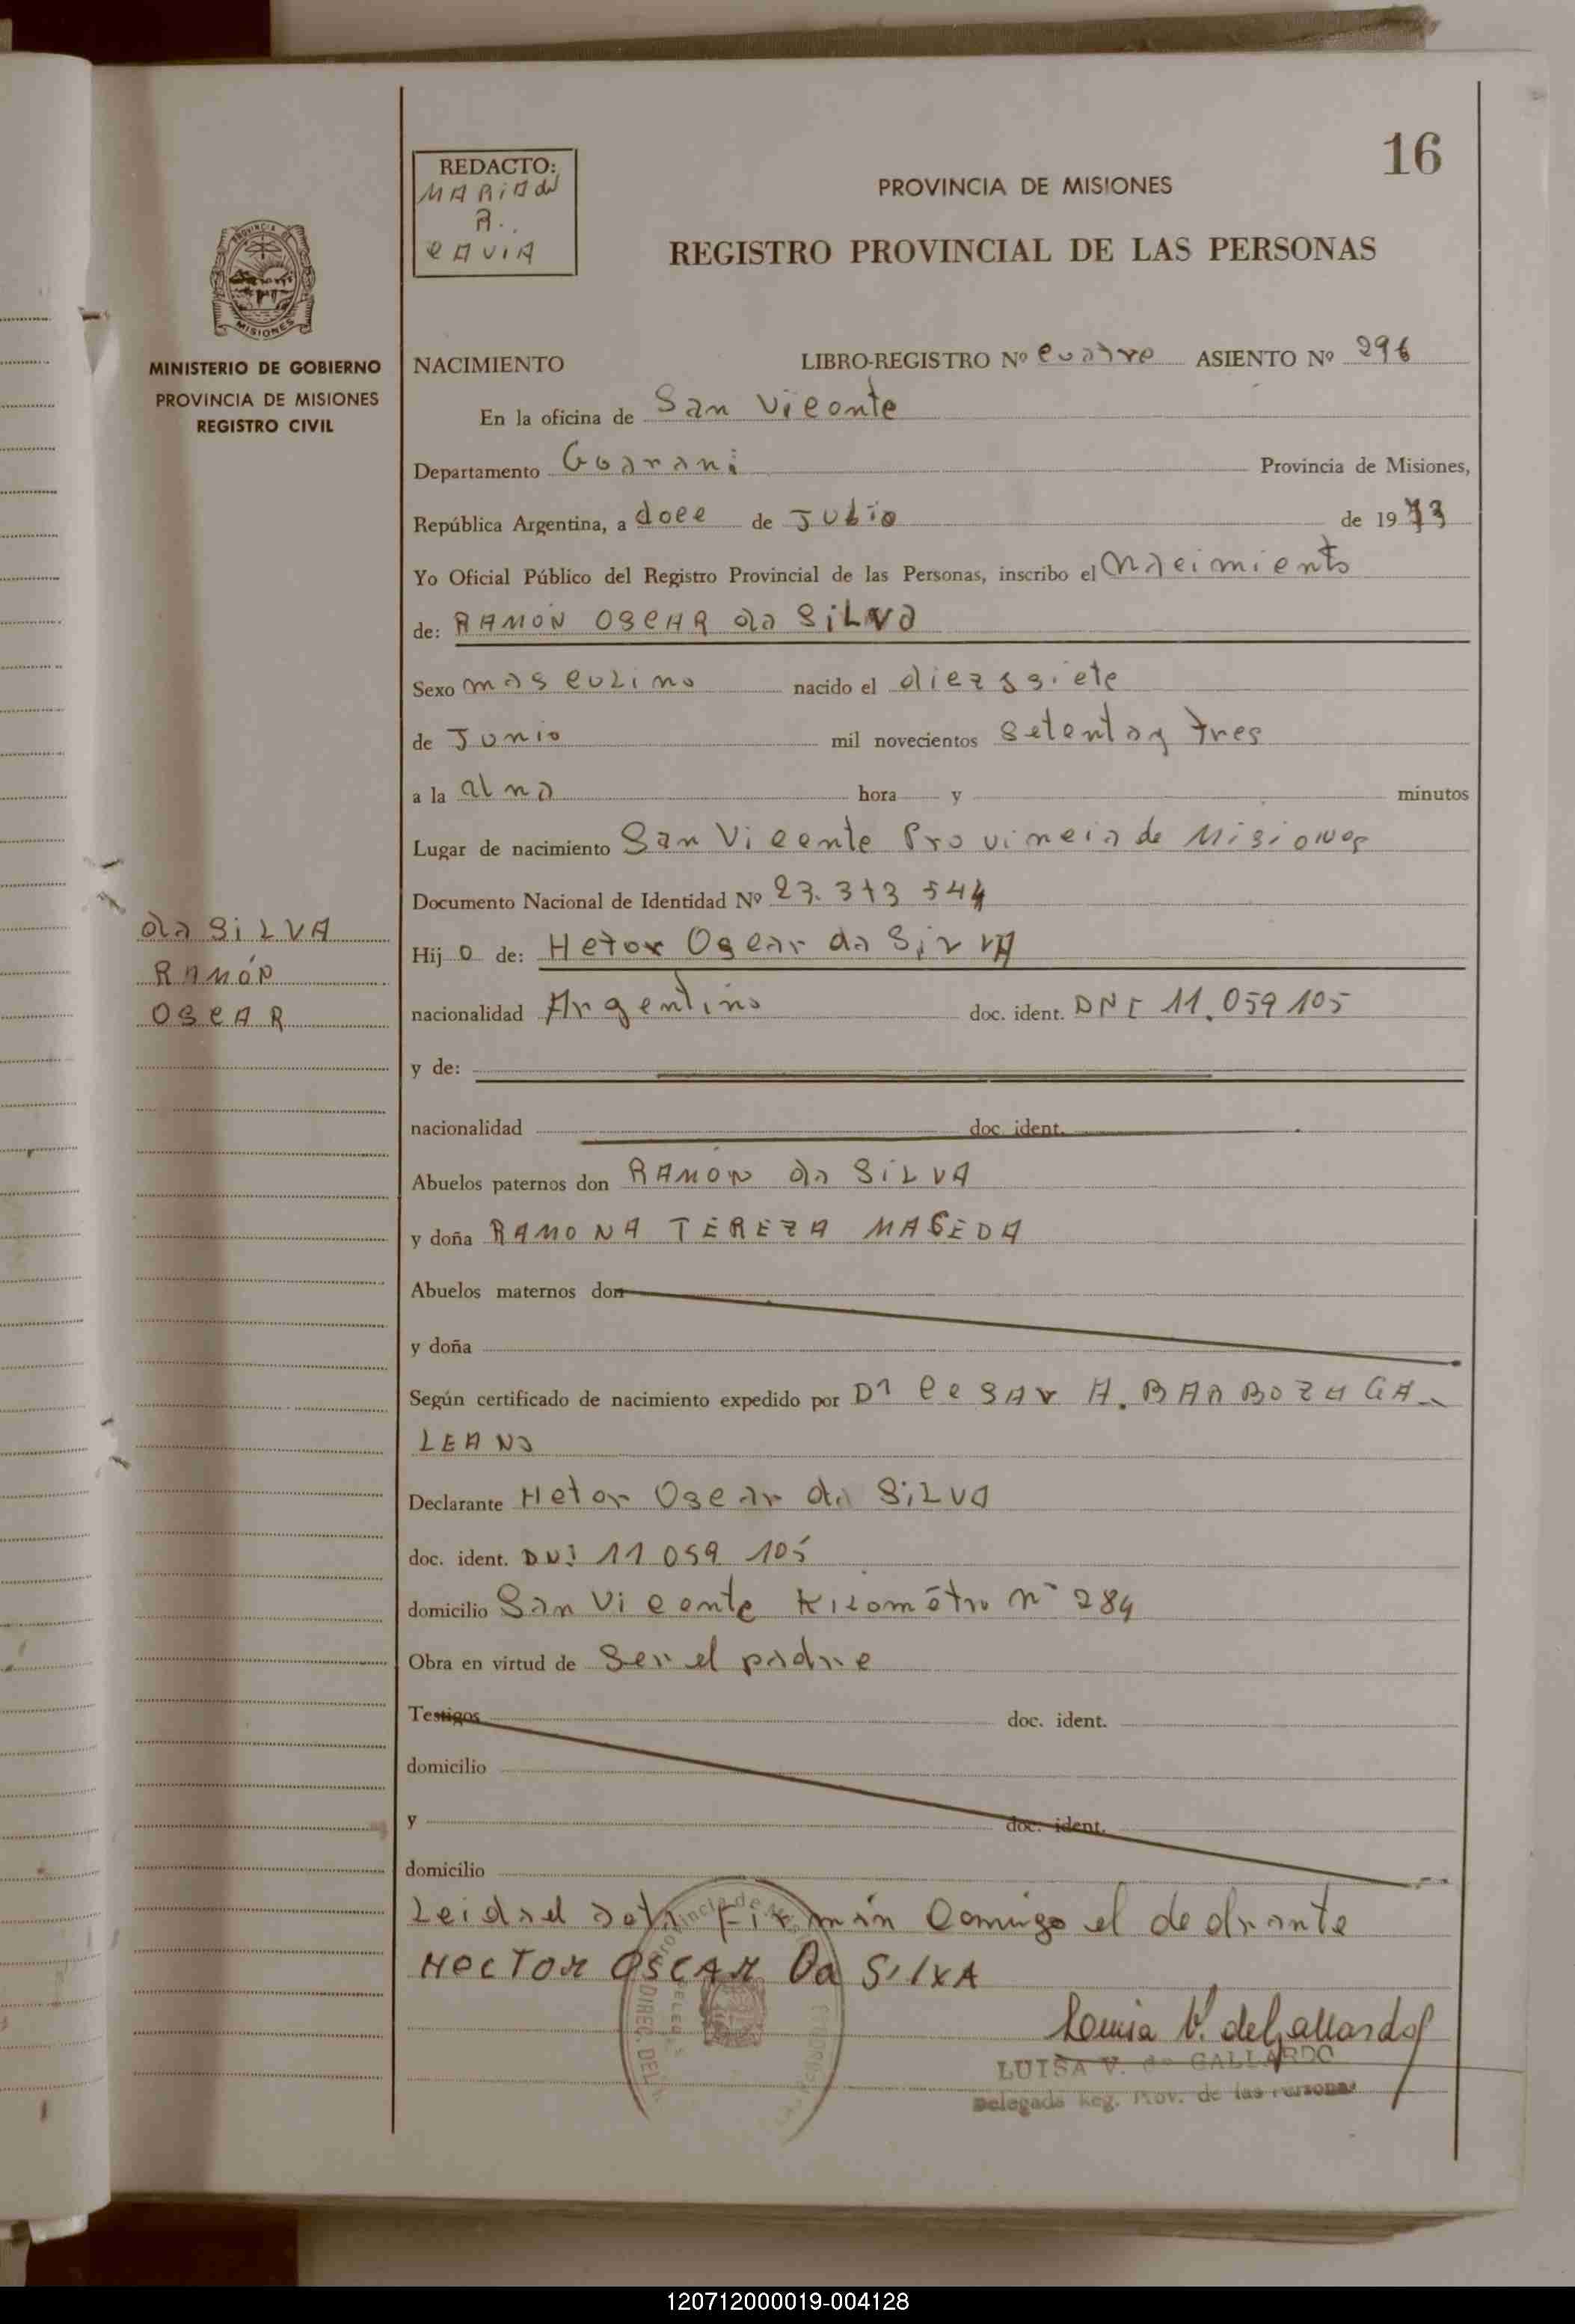 16
REDACTO:
MARiA del
R.
CAVIA
PROVINCIA DE MISIONES
REGISTRO PROVINCIAL DE LAS PERSONAS
PROVINCIA DE
MISIONES
MINISTERIO DE GOBIERNO
PROVINCIA DE MISIONES
REGISTRO CIVIL
NACIMIENTO LIBRO-REGISTRO Nº cuatro ASIENTO Nº 296
En la oficina de San Vicente
Departamento Guarani Provincia de Misiones,
República Argentina, a doce de Julio de 1973
Yo Oficial Público del Registro Provincial de las Personas, inscribo el nacimiento
de: RAMÓN OSCAR da SiLVa
Sexo masculino nacido el diez y siete
de Junio mil novecientos setenta y tres
a la una hora y minutos
Lugar de nacimiento San Vicente Provincia de Misiones
Documento Nacional de Identidad Nº 23.313 544
Hij o de: Hetor Oscar da SiLVA
nacionalidad Argentino doc. ident. DNI 11.059 105
y de:
nacionalidad doc. ident.
Abuelos paternos don RAMÓN da SiLVA
y doña RAMONA TEREZA MASEDA
Abuelos maternos don
y doña
Según certificado de nacimiento expedido por Dr CeSAr A. BARBOZA GA-
LEANO
Declarante Hetor Oscar da SiLVa
doc. ident. DNI 11 059 105
domicilio San Vicente Kilométro nº 284
Obra en virtud de Ser el padre
Testigos doc. ident.
domicilio
y doc. ident.
domicilio
Leida el acta Firmán Comigo el declarante
HecTOR OSCAR Da SilVA
Louisa V. de Gallardo
LUISA V. de GALLARDO
Delegada Reg. Prov. de las Personas
da SiLVA
RAMÓN
OSCAR
120712000019-004128